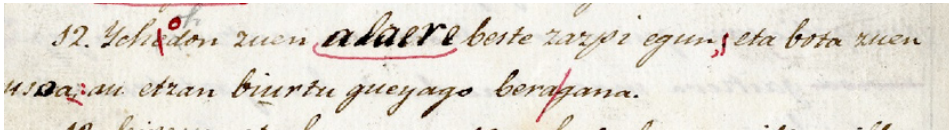 12. Ychedon zuen alaere beste zazpi egun; eta bota zuen
usoa: au etzan biurtu gueyago beragana.